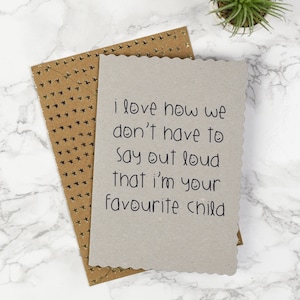 I love how we
don't have to
say out loud
that i'm your
favourite child